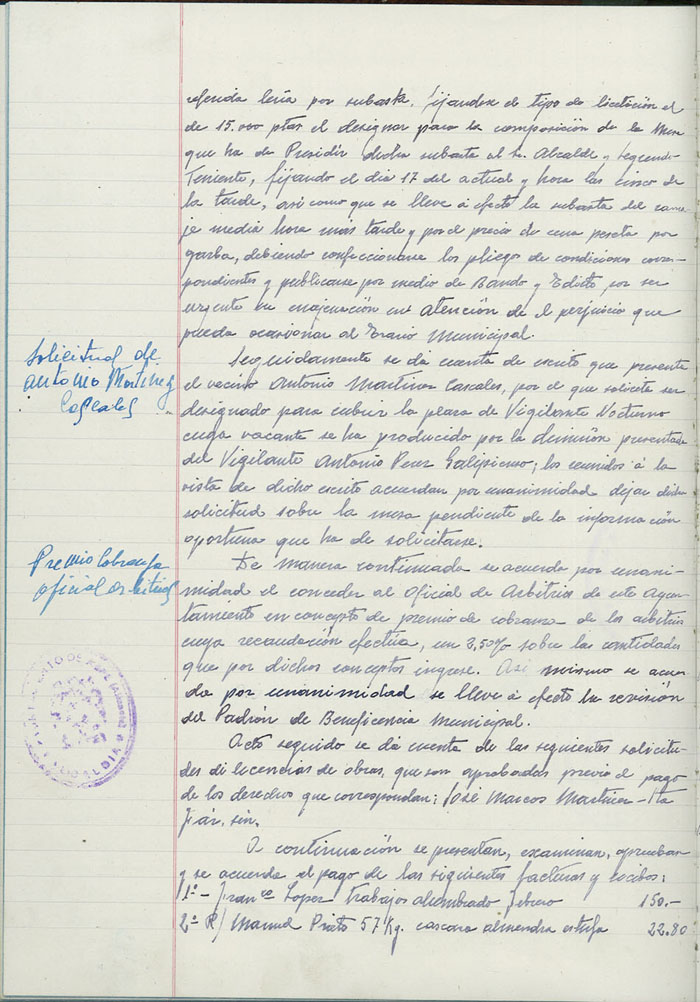 referida leña por subasta, fijandose el tipo de licitación el
de 15.000 ptas el designar para la composición de la Mesa
que ha de Presidir dicha subasta el Sr. Alcalde y segundo
Teniente, fijando el dia 17 del actual y hora las cinco de
la tarde, asi como que se lleve á efecto la subasta del
media hora mas tarde y por el precio de una peseta por
garba, debiendo confeccionarse los pliego de condiciones corres-
pondientes y publicarse por medio de Bando y Edicto por ser
urgente su enajenación en atención de el perjuicio que
pueda ocasionar al Erario Municipal.
Solicitud de
Antonio Martinez
Cascales
Seguidamente se dá cuenta de escrito que presenta
el vecino Antonio Martinez Cascales, por el que solicita ser
designado para cubrir la plaza de Vigilante Nocturno
cuya vacante se ha producido por la dimisión presentada
del Vigilante Antonio Perez Galipienso; los reunidos á la
vista de dicho escrito acuerdan por unanimidad dejar dicha
solicitud sobre la mesa pendiente de la información
oportuna que ha de solicitarse.
Premio Cobranza
oficial arbitrios
De manera continuada se acuerda por unani-
midad el conceder al Oficial de Arbitrios de este Ayun-
tamiento en concepto de premio de cobranza de los arbitrios
cuya recaudación efectúa, un 2,50% sobre las cantidades
que por dichos conceptos ingrese. Asi mismo se acuer-
da por unanimidad se lleve á efecto la revisión
del Padrón de Beneficencia Municipal.
Acto seguido se dá cuenta de las siguientes solicitu-
des de licencias de obras, que son aprobadas previo el pago
de los derechos que correspondan: José Marcos Martinez-
sin.
A continuación se presentan, examinan, aprueban
y se acuerda el pago de las siguientes facturas y recibos:
1º- Lopez Trabajos alumbrado febrero 150.-
2º R/ Manuel Prieto 57 Kg. cascara almendra estufa 22.80
ALCALDIA